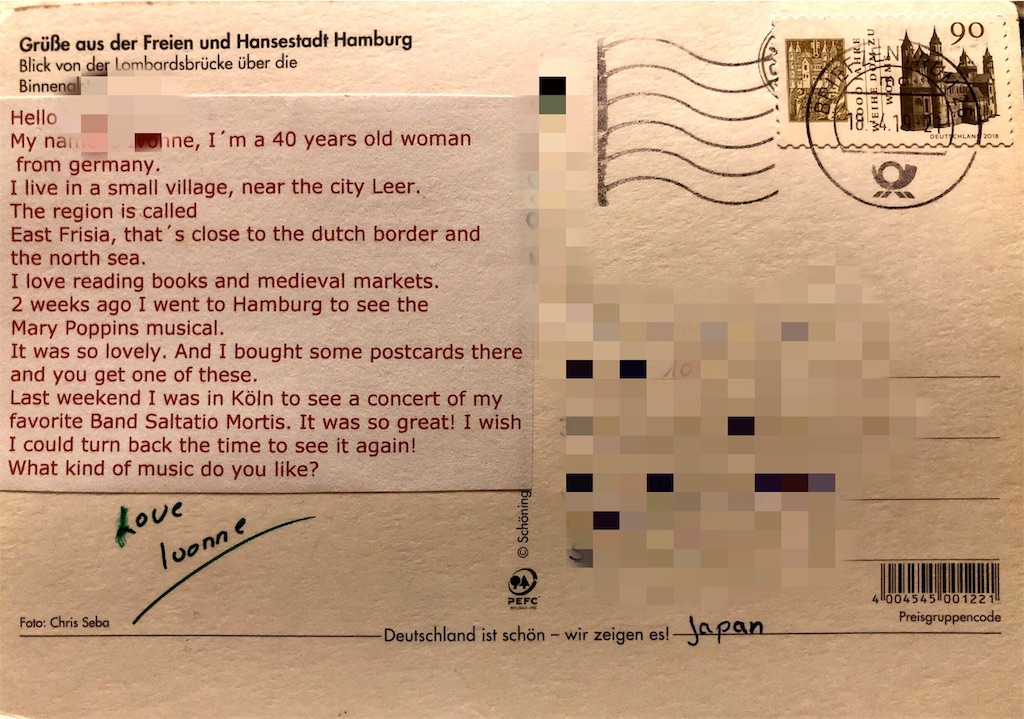 Grüße aus der Freien und Hansestadt Hamburg
Blick von der Lombardsbrücke über die
Hello
My onne, I´m a 40 years old woman
from germany.
I live in a small village, near the city Leer.
The region is called
East Frisia, that´s close to the dutch border and
the north sea.
I love reading books and medieval markets.
2 weeks ago I went to Hamburg to see the
Mary Poppins musical.
It was so lovely. And I bought some postcards there
and you get one of these.
Last weekend I was in Köln to see a concert of my
favorite Band Saltatio Mortis. It was so great! I wish
I could turn back the time to see it again!
What kind of music do you like?
Love
Ivonne
Foto: Chris Seba
Deutschland ist schön – wir zeigen es!
© Schöning
PEFC
90
1000 JAHRE
WEIHE DOM ZU
WORMS
DEUTSCHLAND 2018
BRIEFZENTRUM
10
Japan
4 004545 001221
Preisgruppencode